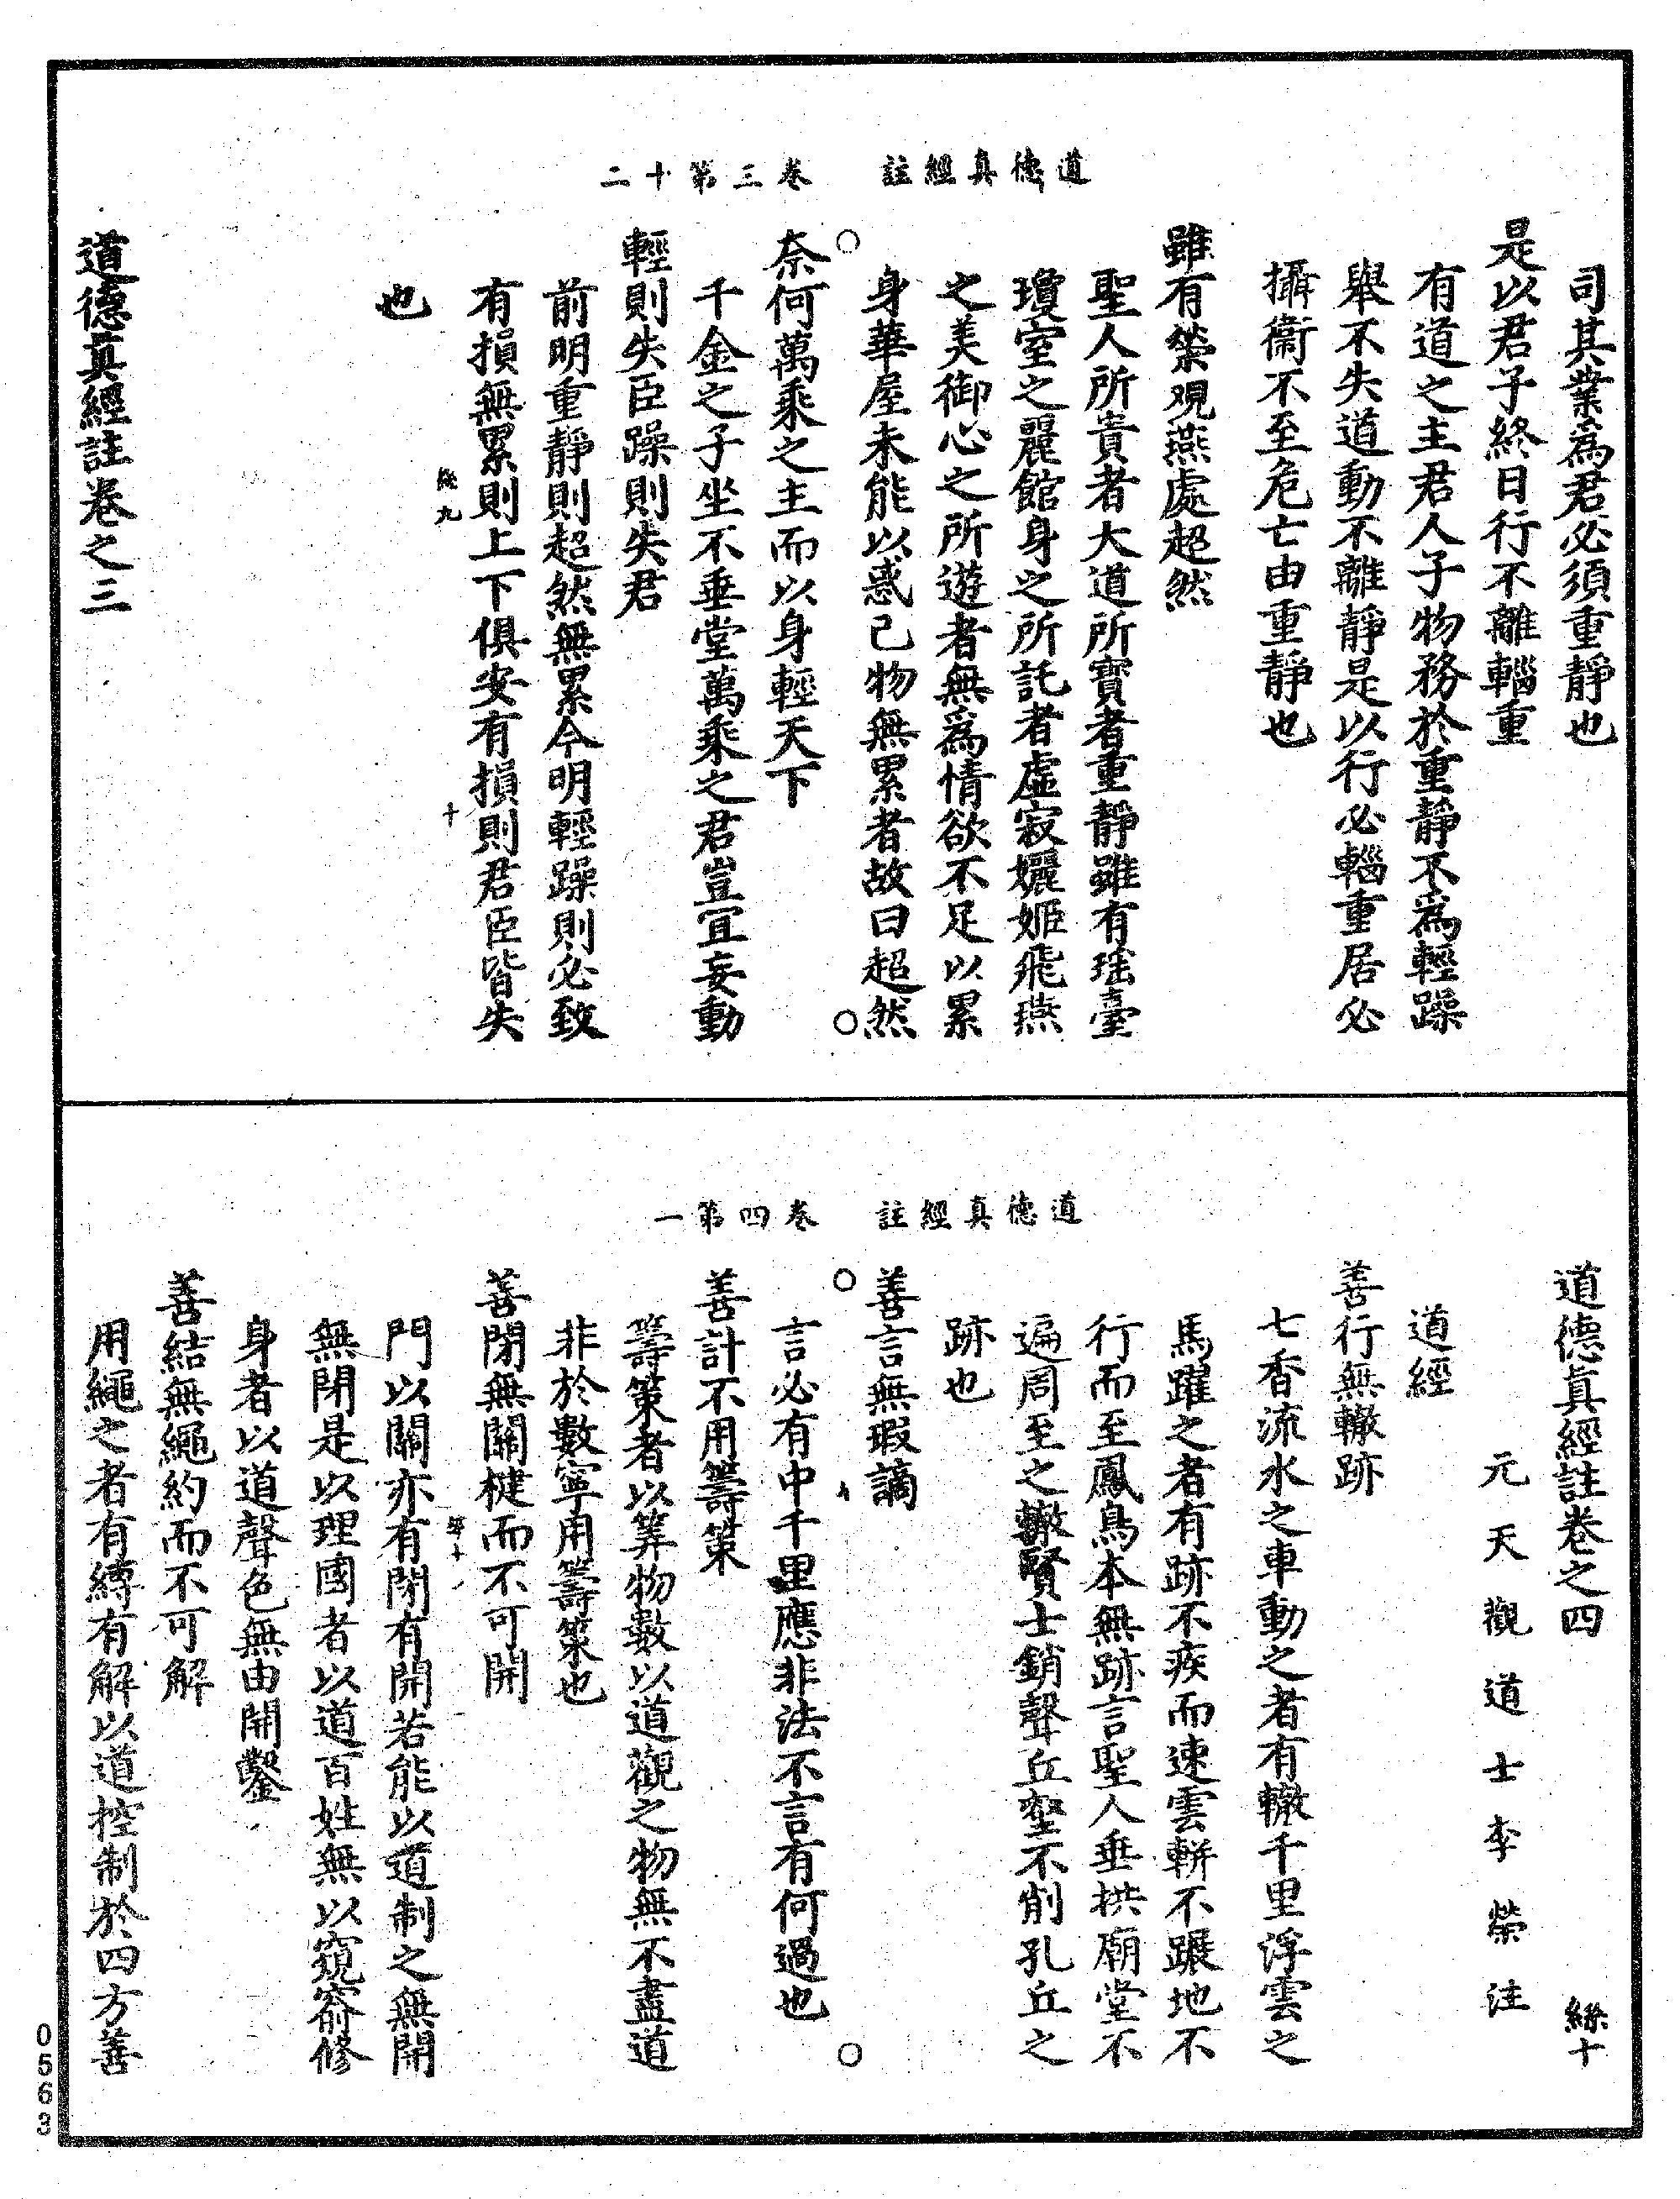 道德真經註　卷三第十二
司其業為君必須重靜也
是以君子終日行不離輜重
有道之主君人子物務於重靜不為輕躁
舉不失道動不離靜是以行必輜重居必
攝衛不至危亡由重靜也
雖有榮觀燕處超然
聖人所貴者大道所寶者重靜雖有瑤臺
瓊室之麗館身之所託者虛寂孋姬飛燕
之美御心之所遊者無為情欲不足以累
身華屋未能以惑己物無累者故曰超然
奈何萬乘之主而以身輕天下
千金之子坐不垂堂萬乘之君豈宜妄動
輕則失臣躁則失君
前明重靜則超然無累今明輕躁則必致
有損無累則上下俱安有損則君臣皆失
絲九　十
也
道德真經註卷之三
道德真經註　卷四第一
道德真經註卷之四　絲十
元天觀道士李榮注
道經
善行無轍跡
七香流水之車動之者有轍千里浮雲之
馬躍之者有跡不疾而速雲軿不蹍地不
行而至鳳鳥本無跡言聖人垂拱廟堂不
遍周至之轍賢士銷聲丘壑不削孔丘之
跡也
善言無瑕謫
言必有中千里應非法不言有何過也
善計不用籌策
籌策者以筭物數以道觀之物無不盡道
非於數寧用籌策也
善閉無關楗而不可開
門以關亦有閉有開若能以道制之無開
無閉是以理國者以道百姓無以窺窬修
身者以道聲色無由開鑿
善結無繩約而不可解
用繩之者有縛有解以道控制於四方善
0563